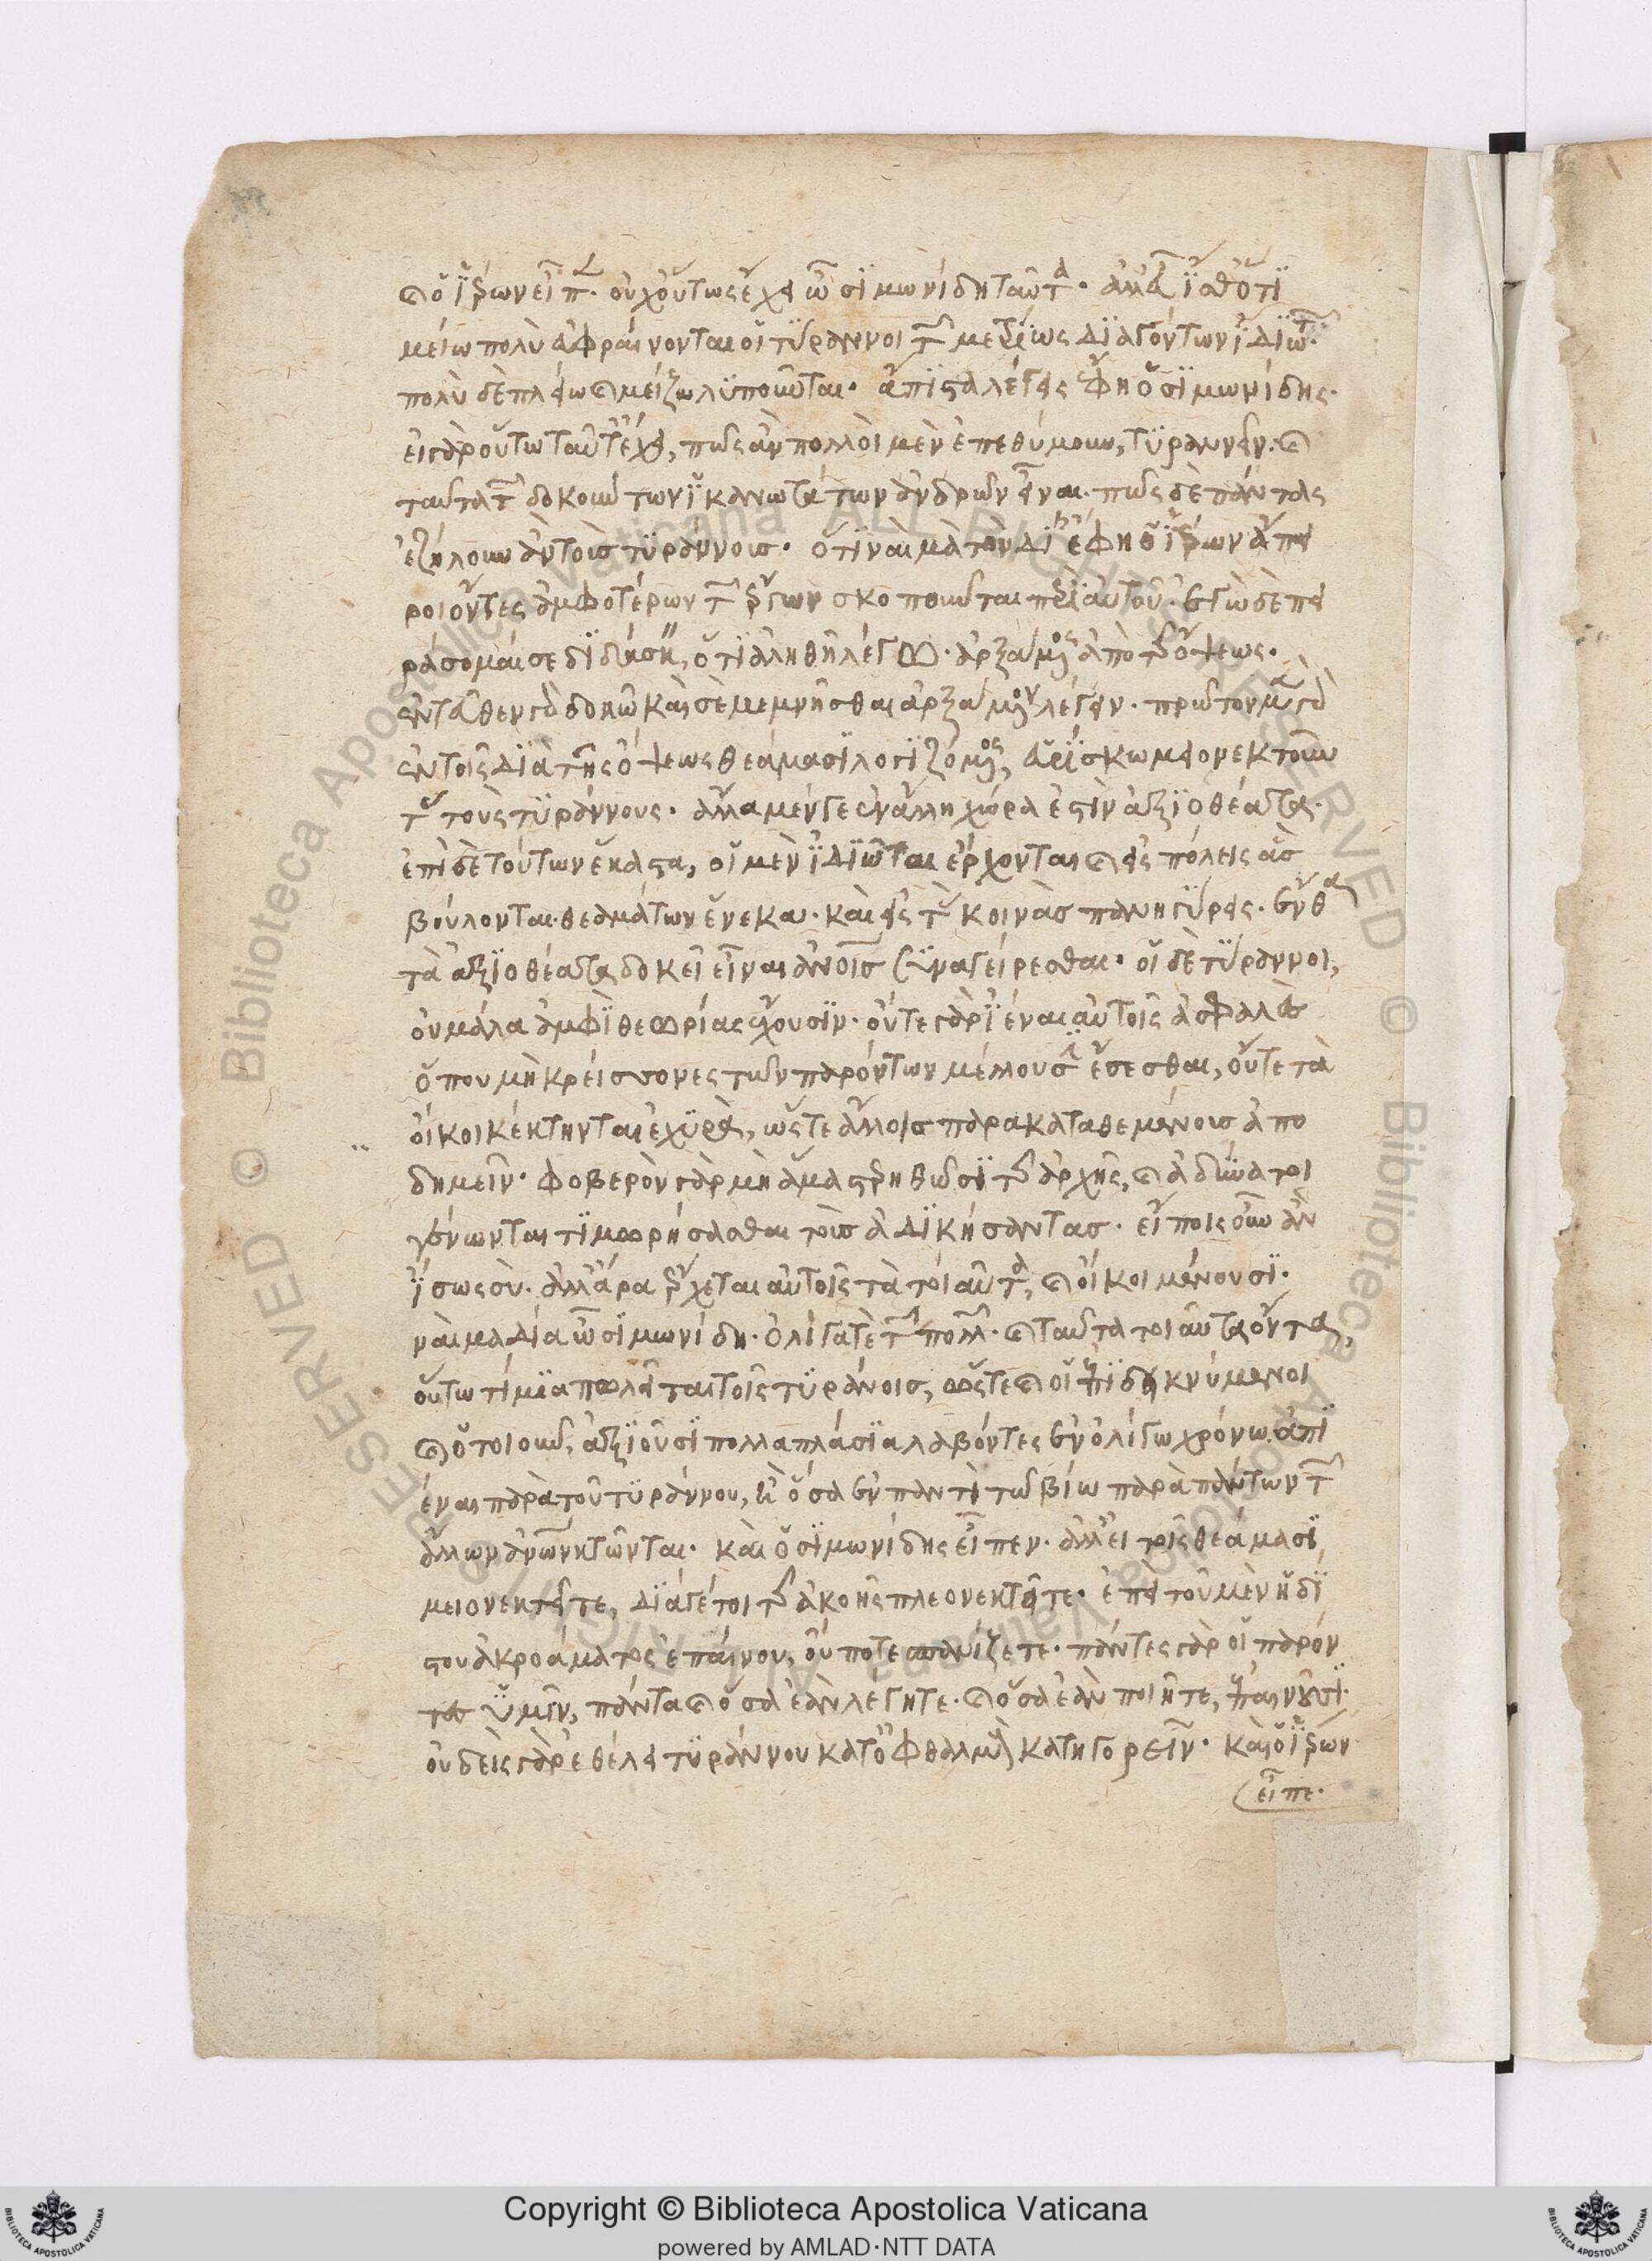 καὶ ὁ ἱέρων εἶπεν· οὐχ οὕτως ἔχει ὦ σιμωνίδη ταῦτα· ἀλλ' εὖ ἴσθ' ὅτι
μείω πολὺ εὐφραίνονται οἱ τύραννοι τῶν μετρίως διαγόντων ἰδιωτῶν·
πολὺ δὲ πλείω καὶ μείζω λυποῦνται· ἄπιστα λέγεις ἔφη ὁ σιμωνίδης·
εἰ γὰρ οὕτω ταῦτ' ἔχει, πῶς ἂν πολλοὶ μὲν ἐπεθύμουν τυραννεῖν· καὶ
ταῦτα τῶν δοκούντων ἱκανωτάτων ἀνδρῶν εἶναι· πῶς δὲ πάντας
ἐζήλουν ἂν τοὺς τυράννους· ὅτι ναὶ μὰ τὸν δί' ἔφη ὁ ἱέρων ἄπει
ροι ὄντες ἀμφοτέρων τῶν ἔργων σκοποῦνται περὶ αὐτοῦ· ἐγὼ δὲ πει
ράσομαί σε διδάσκειν, ὅτι ἀληθῆ λέγω· ἀρξάμενος ἀπὸ τῆς ὄψεως·
ἐντεῦθεν γὰρ δοκῶ καὶ σὲ μεμνῆσθαι ἀρξάμενον λέγειν· πρῶτον μὲν γὰρ
ἐν τοῖς διὰ τῆς ὄψεως θεάμασι λογιζόμενος, εὑρίσκω μειονεκτοῦν
τας τοὺς τυράννους· ἄλλα μέν γε ἐν ἄλλῃ χώρᾳ ἐστὶν ἀξιοθέατα·
ἐπὶ δὲ τούτων ἕκαστα, οἱ μὲν ἰδιῶται ἔρχονται καὶ εἰς πόλεις ἃς
βούλονται θεαμάτων ἕνεκα· καὶ εἰς τὰς κοινὰς πανηγύρεις· ἔνθα
τὰ ἀξιοθέατα δοκεῖ εἶναι ἀνθρώποις συναγείρεσθαι· οἱ δὲ τύραννοι,
οὐ μάλα ἀμφὶ θεωρίας ἔχουσιν· οὔτε γὰρ ἰέναι αὐτοῖς ἀσφαλὲς
ὅπου μὴ κρείσσονες τῶν παρόντων μέλλουσιν ἔσεσθαι, οὔτε τὰ
οἴκοι κέκτηνται ἐχυρὰ, ὥστε ἄλλοις παρακαταθεμένους ἀπο
δημεῖν· φοβερὸν γὰρ μὴ ἅμα στερηθῶσι τῆς ἀρχῆς, καὶ ἀδύνατοι
γένωνται τιμωρήσασθαι τοὺς ἀδικήσαντας· εἴποις οὖν ἂν
ἴσως σὺ· ἀλλ' ἄρα ἔρχεται αὐτοῖς τὰ τοιαῦτα, καὶ οἴκοι μένουσι·
ναὶ μὰ δία ὦ σιμωνίδη· ὀλίγα γε τῶν πολλῶν· καὶ ταῦτα τοιαῦτα ὄντα,
οὕτω τίμια πωλεῖται τοῖς τυράνοις, ὥστε καὶ οἱ ἐπιδεικνύμενοι
καὶ ὁτιοῦν, ἀξιοῦσι πολλαπλάσια λαβόντες ἐν ὀλίγω χρόνω ἀπι
έναι παρὰ τοῦ τυράννου, ἢ ὅσα ἐν παντὶ τῶ βίω παρὰ πάντων τῶν
ἄλλων ἀνθρώπων κτῶνται· καὶ ὁ σιμωνίδης εἶπεν· ἀλλ' εἰ τοῖς θεάμασι
μειονεκτεῖτε, διά γέ τοι τῆς ἀκοῆς πλεονεκτεῖτε· ἐπεὶ τοῦ μὲν ἡδί
στου ἀκροάματος ἐπαίνου, οὔποτε σπανίζετε· πάντες γὰρ οἱ παρόν
τες ὑμῖν, πάντα καὶ ὅσα ἐὰν λέγητε· καὶ ὅσα ἐὰν ποιῆτε, ἐπαινοῦσι·
οὐδεὶς γὰρ ἐθέλει τυράννου κατ' ὀφθαλμοὺς κατηγορεῖν· καὶ ὁ ἱέρων
εἶπε·
Copyright © Biblioteca Apostolica Vaticana
powered by AMLAD·NTT DATA